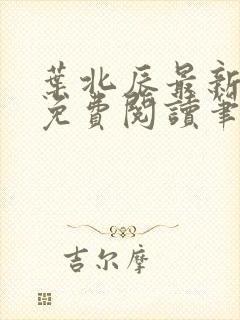 葉北辰最新
免費閱讀筆
吉尔摩